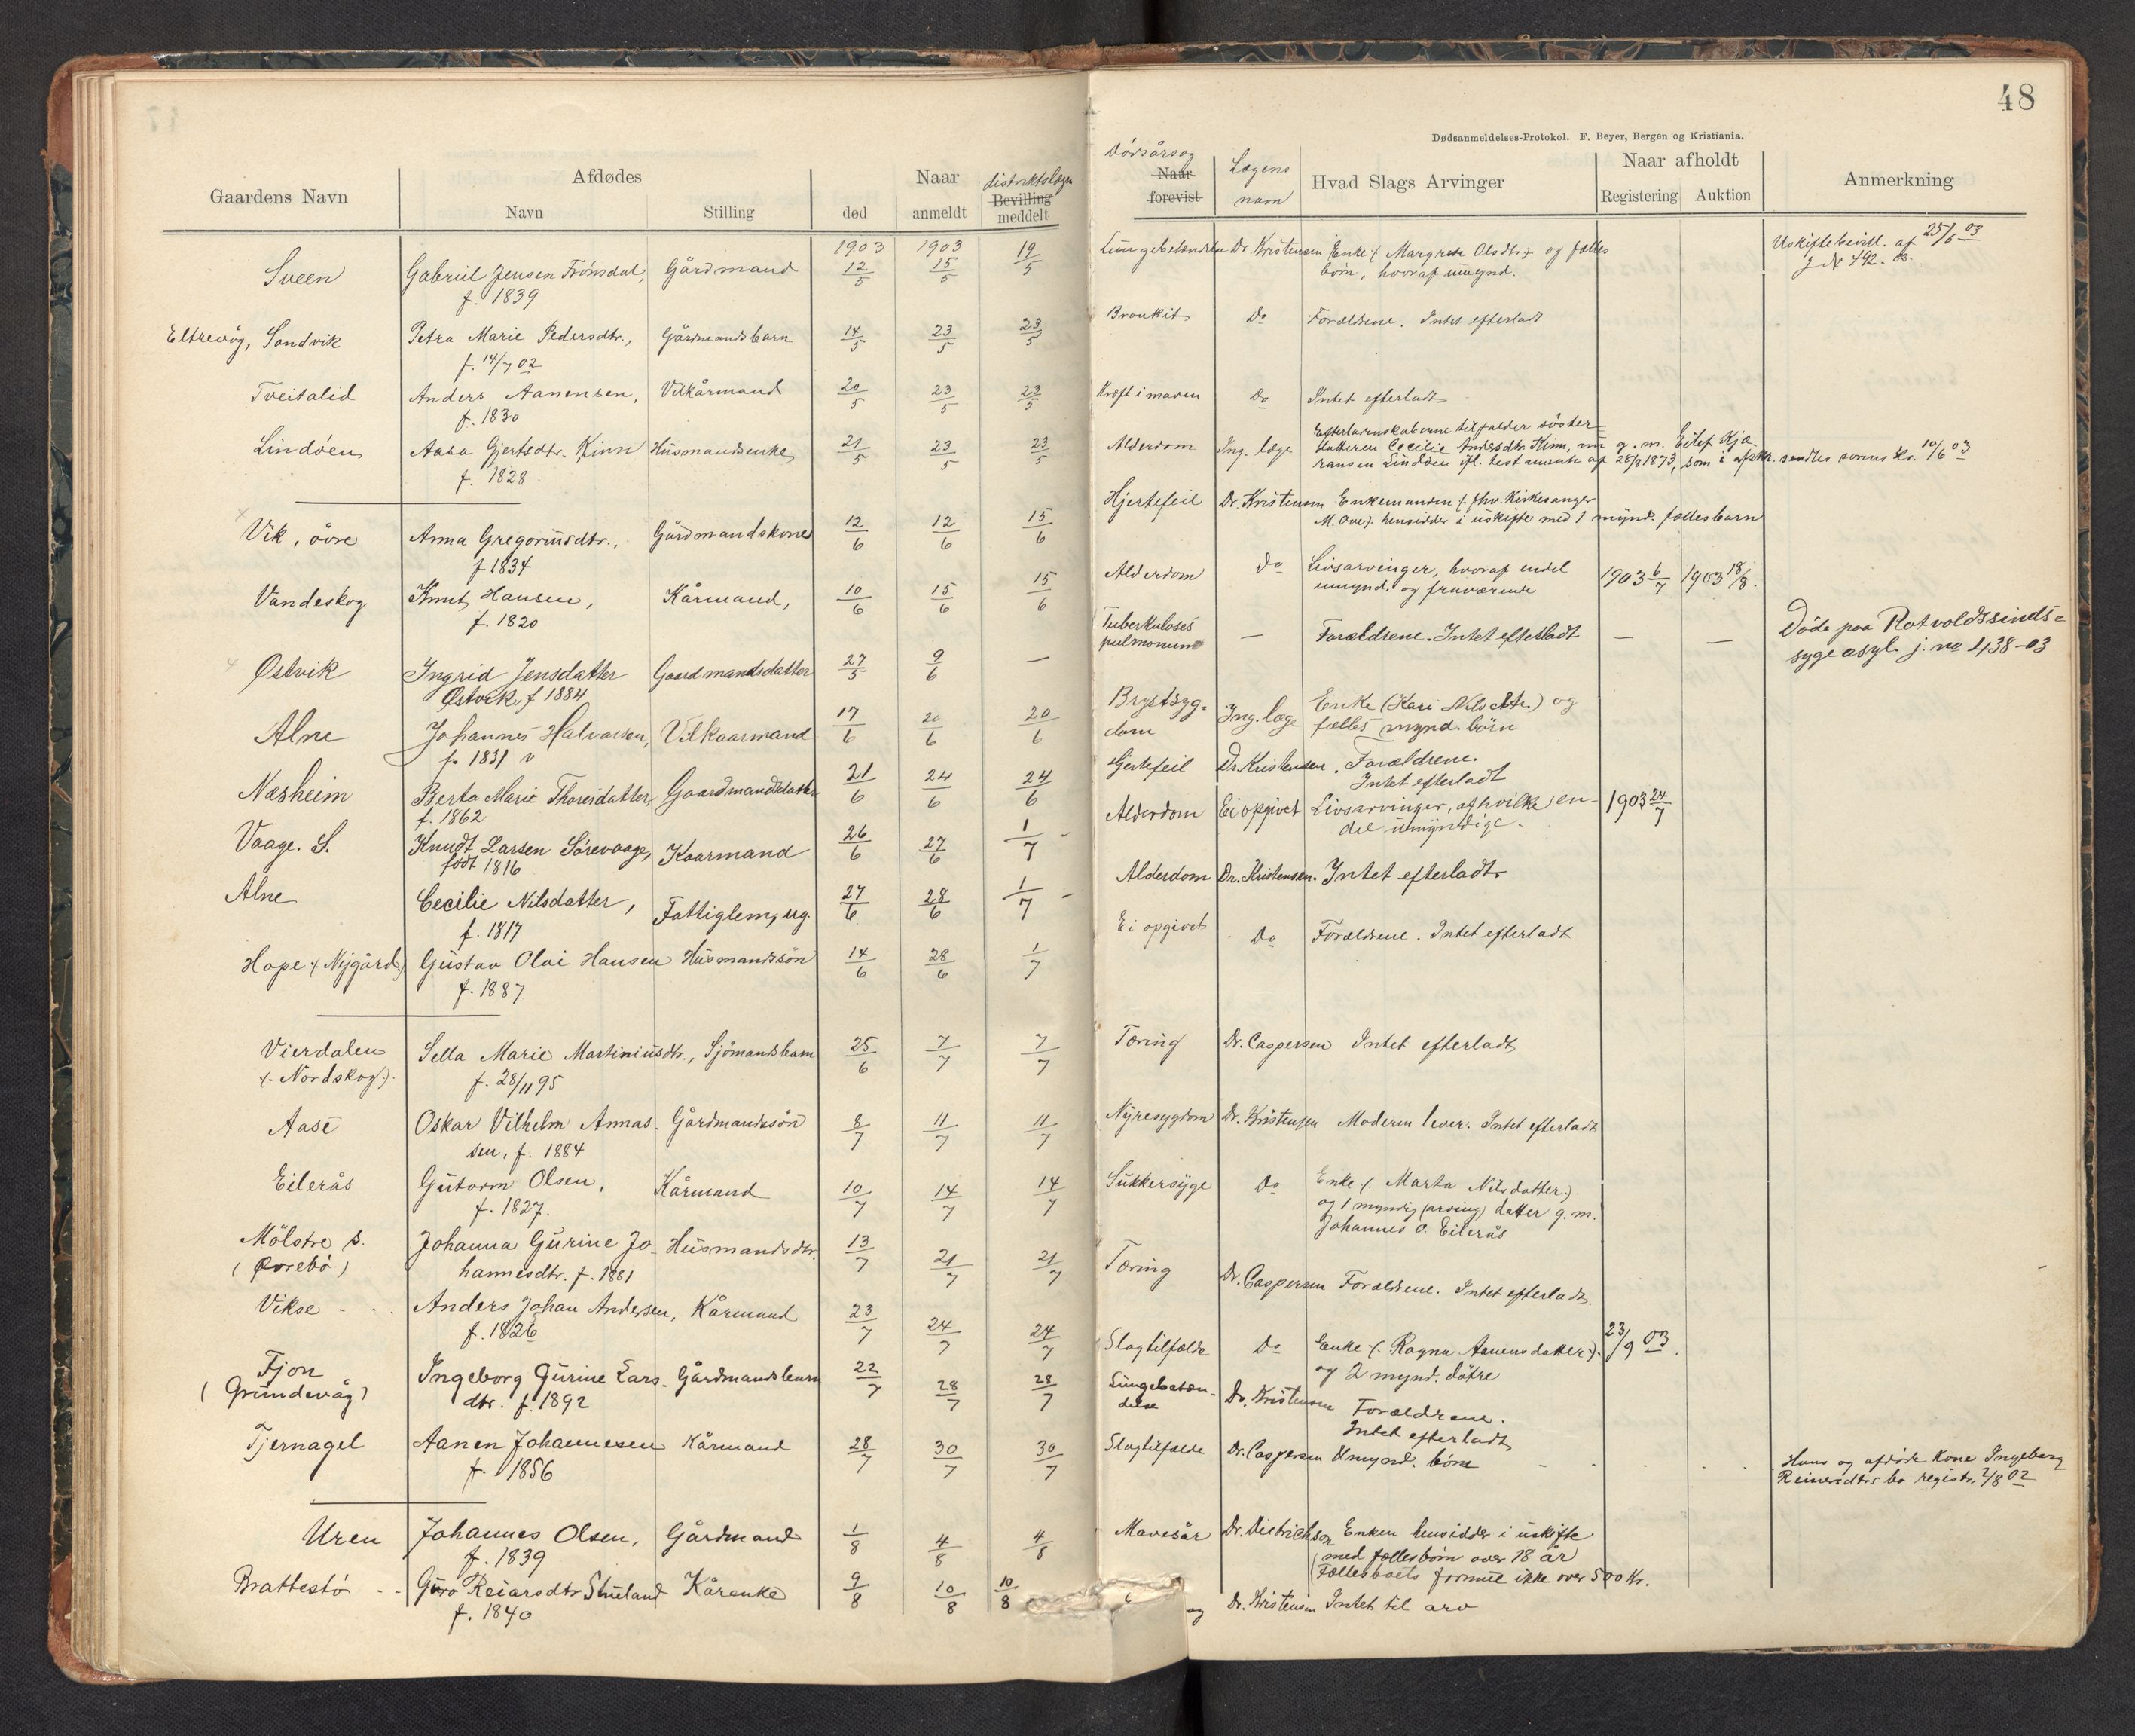 48
Dødsanmeldelses-Protokol. F. Beyer, Bergen og Kristiania.
Gaardens Navn
Afdødes
Navn
Stilling
Naar
død
anmeldt
distriktslæge
Bevilling
meddelt
Dødsårsag
Naar
forevist
Lægens
navn
Hvad Slags Arvinger
Naar afholdt
Registering
Auktion
Anmerkning
1903 1903
Sveen Gabriel Jensen Trönsdal, Gårdmand 12/5 15/5 19/5 Lungebetændelse Dr. Kristensen Enke (Margrete Olsdtr.) og fælles Uskiftebevill. af 25/6 03
f. 1839 børn, hvoraf umynd. J № 492. 03.
Eltrevåg, Sandvik Petra Marie Pedersdtr., Gårdmandsbarn 14/5 23/5 23/5 Bronkit Do Forældrene. Intet efterladt
f. 14/7 02
Tveitalid Anders Aanensen, Vilkårmand 20/5 23/5 23/5 Kræft i maven Do Intet efterladt
f. 1830
Efterladenskaberne tilfalder söster-
Lindöen Aasa Gjertsdtr. Kinn Husmandsenke 21/5 23/5 23/5 Alderdom Ing. læge datteren Cecilie Andersdtr. Kinn, nu g. m. Eilef Kjæ-
f. 1828 ransen Lindöen ifl. testamente af 28/8 1873, som i afskr. sendtes sorenskr. 10/6 03
Vik, övre Anna Gregoriusdtr., Gårdmandskone 12/6 12/6 15/6 Hjertefeil Dr. Kristensen Enkemanden (fhv. Kirkesanger
f 1834 M. Ove) hensidder i uskifte med 1 mynd. fællesbarn
Vandeskog Knut Hansen, Kårmand, 10/6 15/6 15/6 Alderdom Do Livsarvinger, hvoraf endel 1903 6/7 1903 18/8.
f. 1820 umynd. og fraværende
Østvik Ingrid Jensdatter Gaardmandsdatter 27/5 9/6 — Tuberkuloses — Forældrene. Intet efterladt — — Döde paa Rotvoldssinds-
Østvik, f 1884 pulmonum sygeasyl. j. no 438-03
Alne Johannes Halvorsen, Vilkaarmand 17/6 20/6 20/6 Brystsyg- Ing. læge Enke (Kari Nilsdtr.) og
f. 1831 dom fælles mynd. börn
Næsheim Berta Marie Thoresdatter, Gaardmandsdatter 21/6 24/6 24/6 Gjertefeil Dr. Kristensen. Forældrene.
f. 1862 Intet efterladt
Vaage. S. Knudt Larsen Sörevaage, Kaarmand 26/6 27/6 1/7 Alderdom Ei opgivet Livsarvinger, af hvilke en- 1903 24/7
födt 1816 del umyndige.
Alne Cecilie Nilsdatter, Fattiglem, ug. 27/6 28/6 1/7 Alderdom Dr. Kristensen. Intet efterladt
f. 1817
Hope (Nygård) Gustav Olai Hansen Husmandssön 14/6 28/6 1/7 Ei opgivet Do Forældrene. Intet efterladt
f. 1887
Vierdalen Sella Marie Martiniusdtr., Sjömandsbarn 25/6 7/7 7/7 Tæring Dr. Caspersen Intet efterladt
(Nordskog). f. 28/11 95
Aase Oskar Vilhelm Annas- Gårdmandssön 8/7 11/7 11/7 Nyresygdom Dr. Kristensen Moderen lever. Intet efterladt
sen, f. 1884
Eilerås Gutorm Olsen, Kårmand 10/7 14/7 14/7 Sukkersyge Do Enke (Marta Nilsdatter).
f. 1827. og 1 myndig (arving) datter g. m.
Johannes O. Eilerås
Mölstre s. Johanna Gurine Jo- Husmandsdtr. 13/7 21/7 21/7 Tæring Dr. Caspersen Forældrene. Intet efterladt.
(Øvrebö) hannesdtr. f. 1881
Vikse Anders Johan Andersen, Kårmand 23/7 24/7 24/7 Slagtilfælde Do Enke (Ragna Aanensdatter). 23/9 03.
f. 1826 og 2 mynd. dötre
Fjon Ingeborg Gurine Lars- Gårdmandsbarn 22/7 28/7 28/7 Lungebetæn- Dr. Kristensen Forældrene.
(Grundevåg) dtr. f. 1892 delse Intet efterladt
Tjernagel Aanen Johannesen Kårmand 28/7 30/7 30/7 Slagtilfælde Dr. Caspersen Umynd. börn Hans og afdöde Kone Ingeborg
f. 1856 Reinersdtrs bo registr. 2/8 02
Uren Johannes Olsen, Gårdmand 1/8 4/8 4/8 Mavesår Dr. Dietrichson Enken hensidder i uskifte
f. 1839 (med fællesbörn over 18 år)
Fællesboets formue ikke over 500 Kr.
Brattestö Guro Reiarsdtr Stueland Kårenke 9/8 10/8 10/8 og Dr. Kristensen Intet til arv
f. 1840